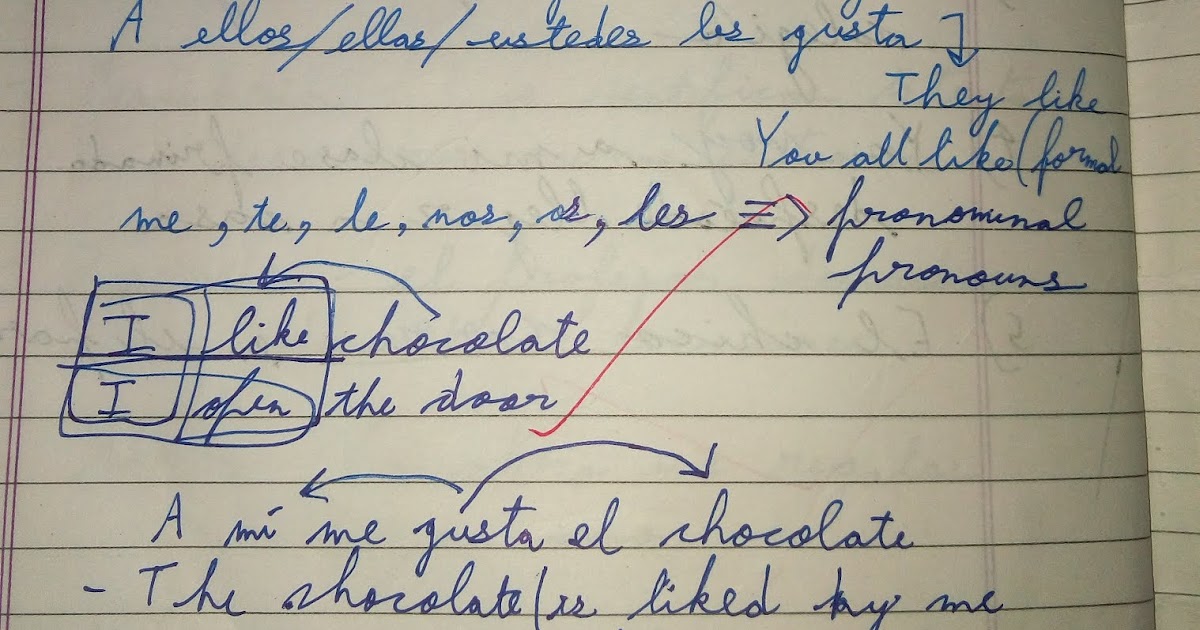 A ellos/ellas/ustedes les gusta
They like
You all like (formal
me, te, le, nos, os, les => pronominal
pronouns
I like chocolate
I open the door
A mí me gusta el chocolate
- The chocolate is liked by me